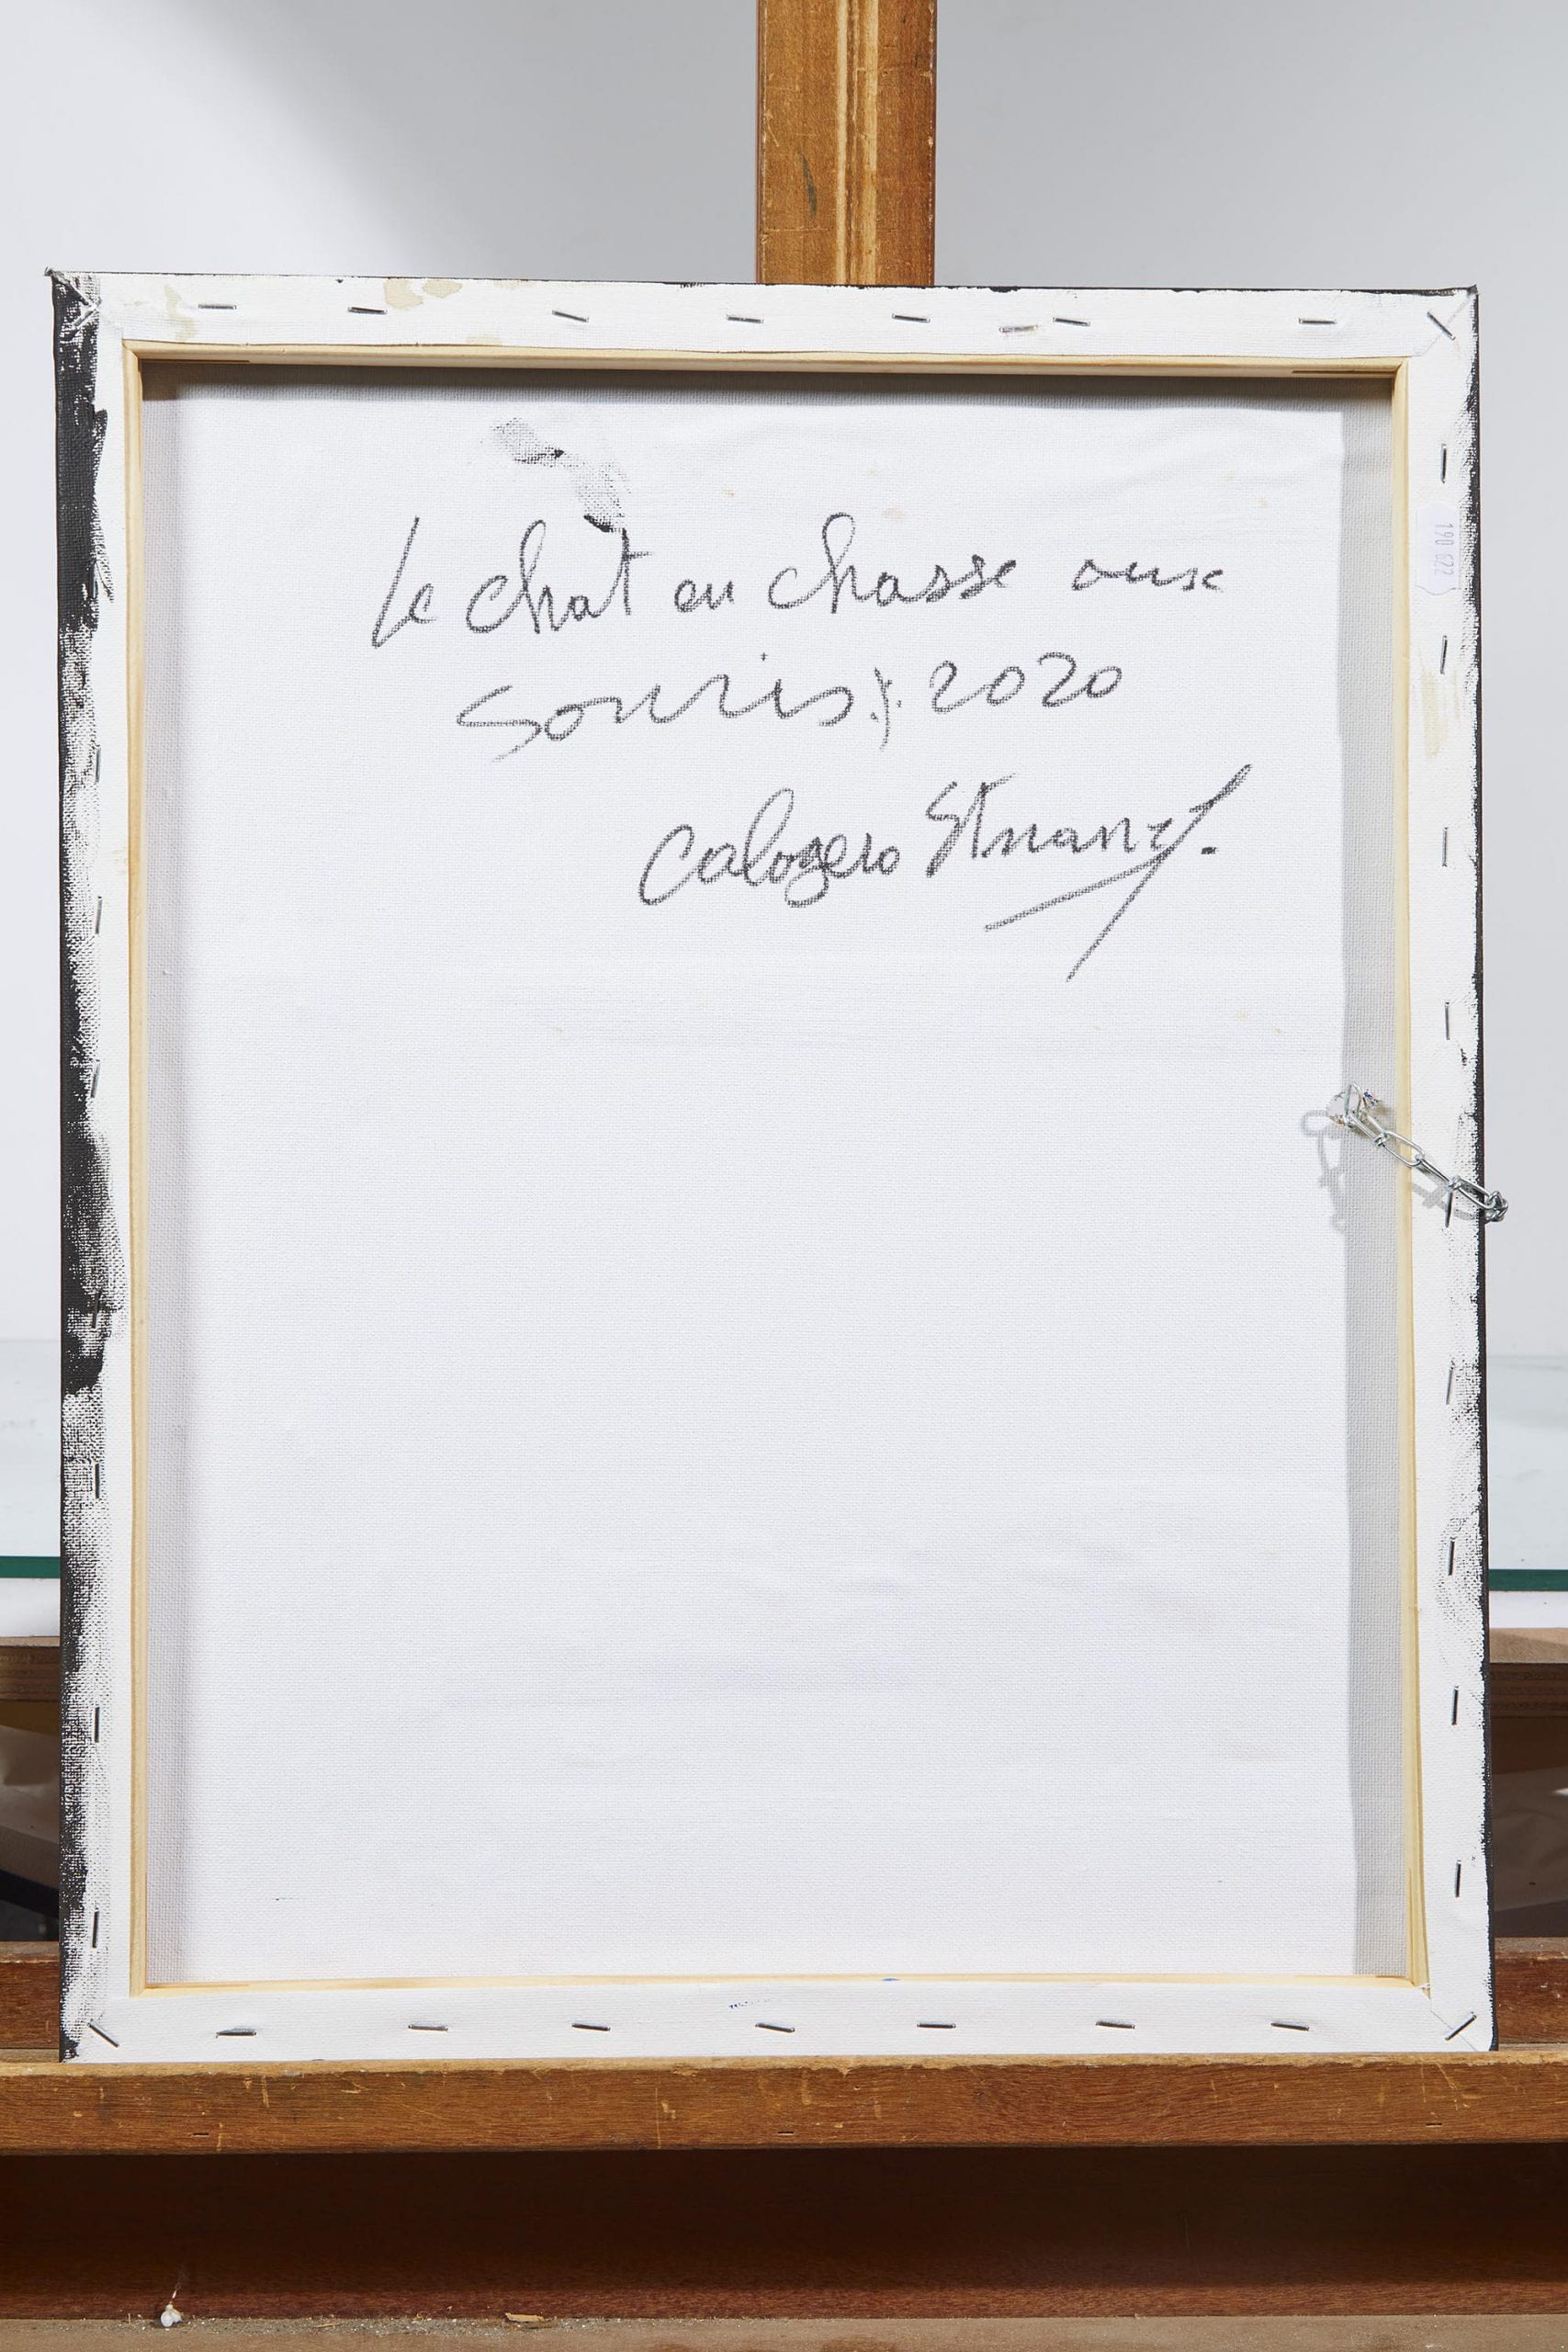 Le chat en chasse aux
souris; 2020
Calogero
190 622